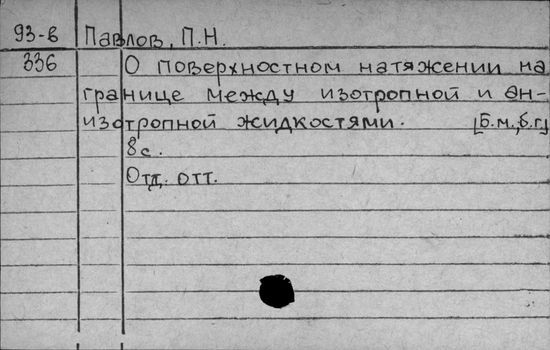 93-в Павлов, П.Н.
336 О поверхностном натяжении на
границе между изотропной и ан-
изотропной жидкостями. [Б.м., б.г.]
8 с.
Отд. отт.